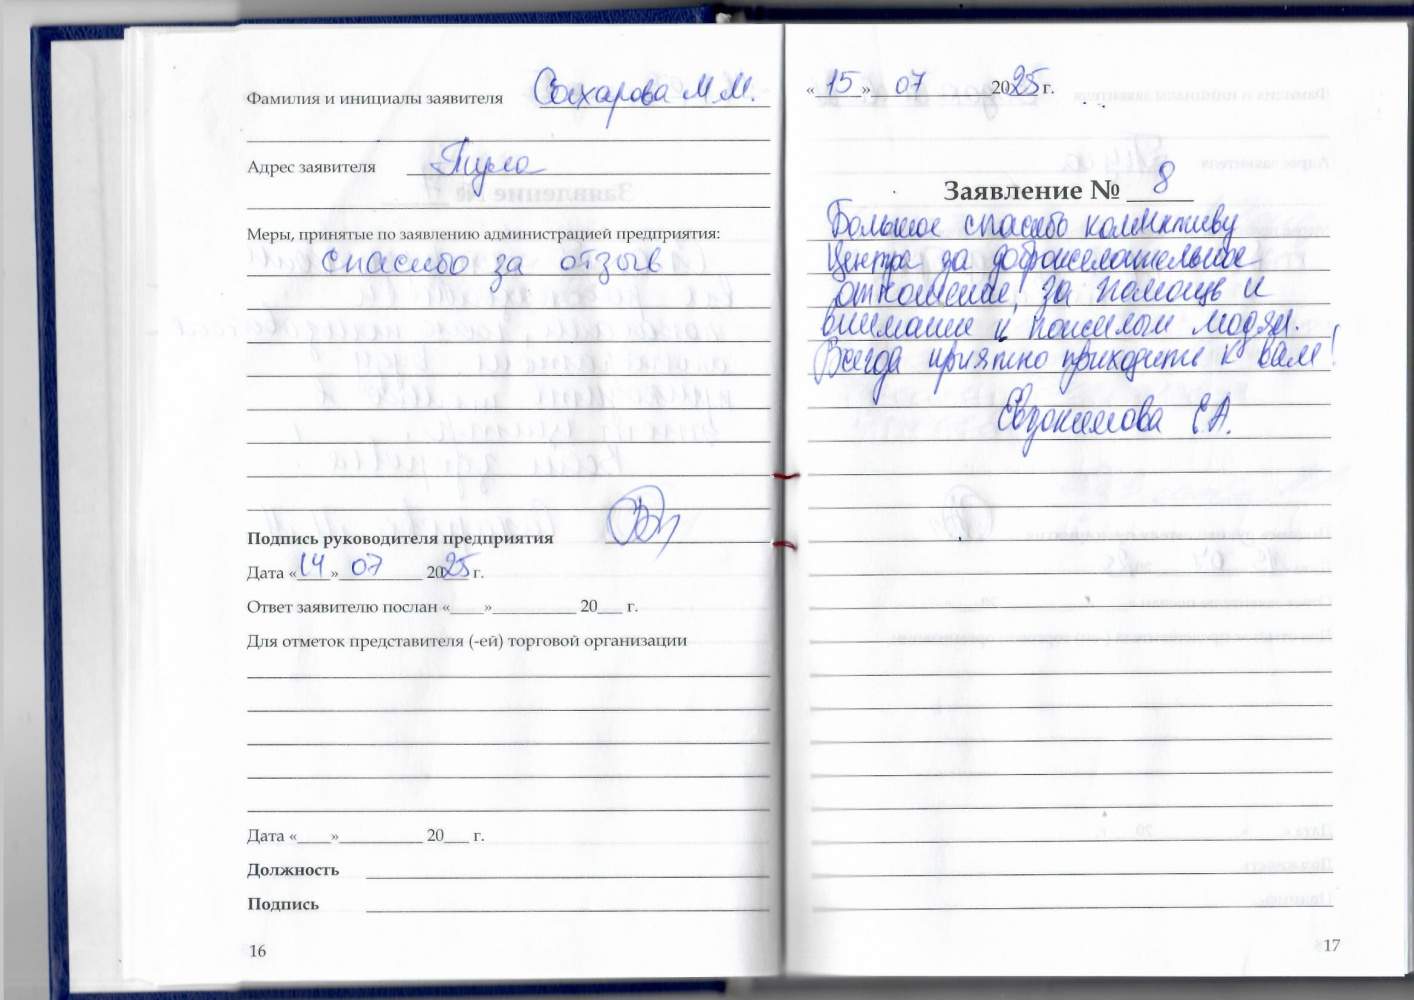 Фамилия и инициалы заявителя Сахарова М.М.
Адрес заявителя Тула
Меры, принятые по заявлению администрацией предприятия:
Спасибо за отзыв
Подпись руководителя предприятия
Дата «14» 07 2025 г.
Ответ заявителю послан «____»__________ 20___ г.
Для отметок представителя (-ей) торговой организации
Дата «____»__________ 20___ г.
Должность
Подпись
16
«15» 07 2025 г.
Заявление № 8
Большое спасибо коллективу
Центра за доброжелательное
отношение, за помощь и
внимание к пожилым людям.
Всегда приятно приходить к вам!
Евдокимова Е.А.
17